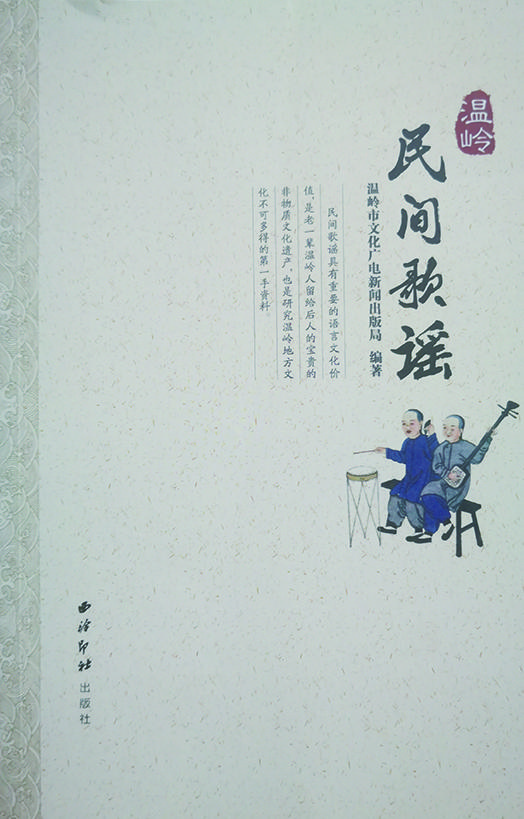 温岭
民间歌谣
温岭市文化广电新闻出版局 编著
民间歌谣具有重要的语言文化价
值,是老一辈温岭人留给后人的宝贵的
非物质文化遗产,也是研究温岭地方文
化不可多得的第一手资料
西泠印社
出版社